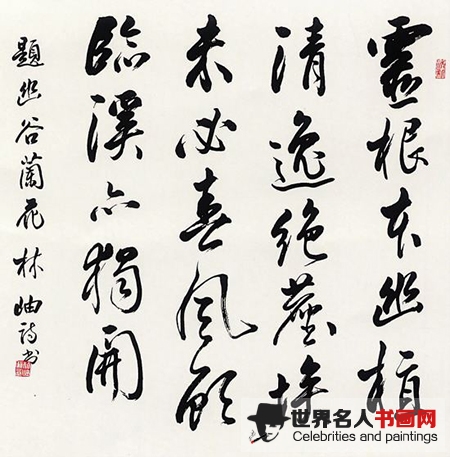 靈根本幽植
清逸絕塵埃
未必喜風顧
臨溪亦獨開
題幽谷蘭花 林岫詩书
世界名人书画网
Celebrities and paintings